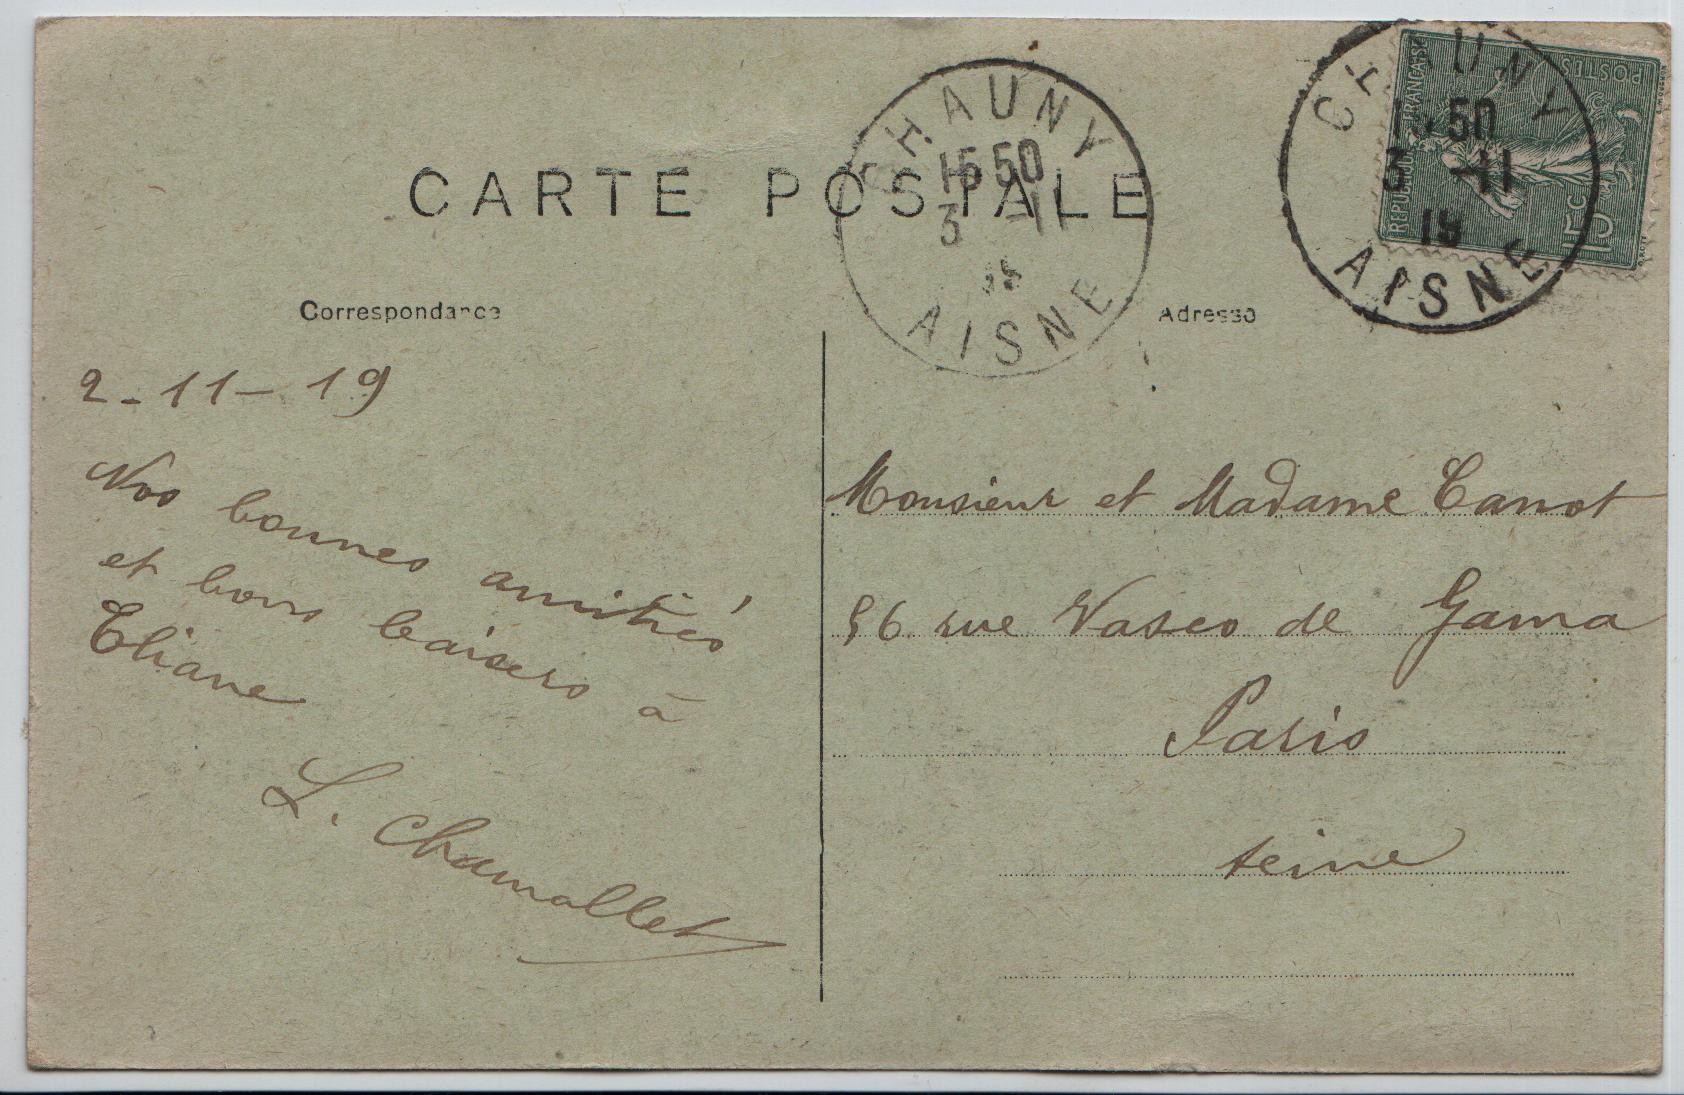 CARTE POSTALE
Correspondance
Adresse
CHAUNY
15 50
3 -11
19
AISNE
CHAUNY
15 50
3 -11
19
AISNE
REPUBLIQUE FRANÇAISE
POSTES
15 C
2-11-19
Nos bonnes amitiés
et bons baisers à
Eliane
L. Chamallet
Monsieur et Madame Canot
56 rue Vasco de Gama
Paris
Seine